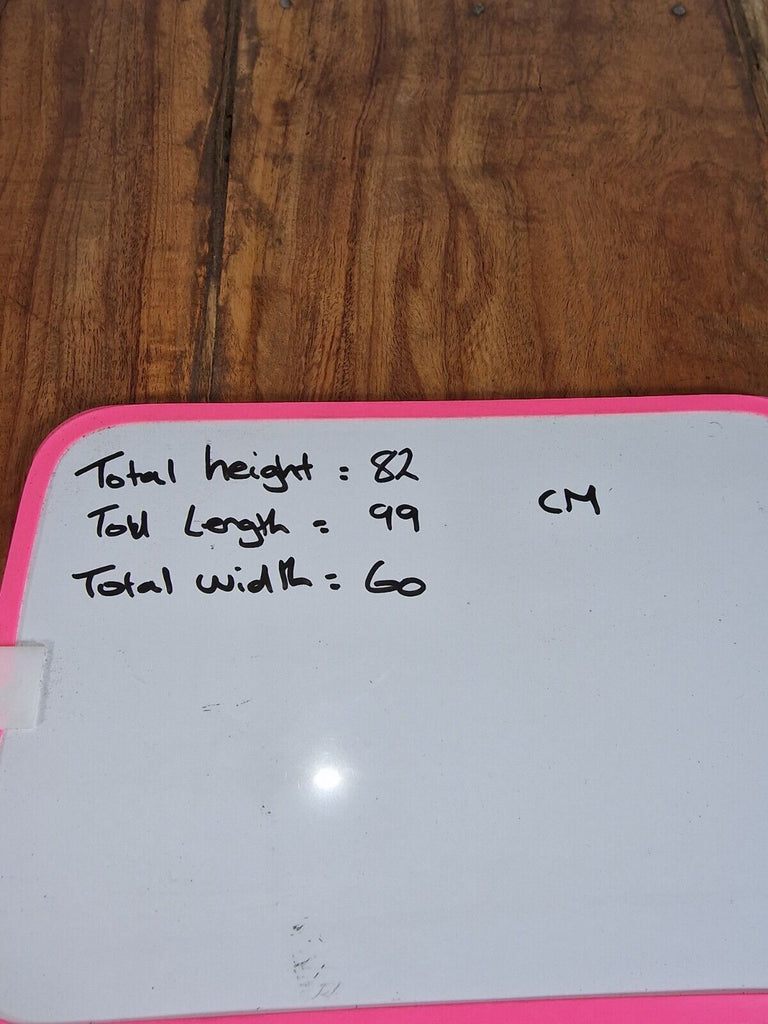 Total height = 82
Total Length = 99
CM
Total width = 60